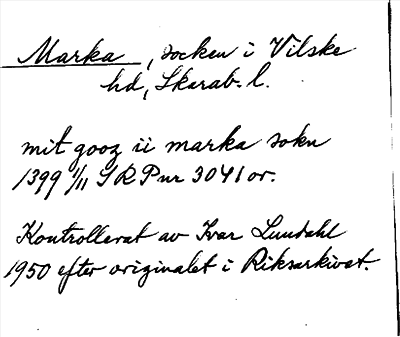 Marka, socken i Vilske
hd, Skarab. l.
mit gooz ii marka sokn
1399 1/11 SRP nr 3041 or.
Kontrollerat av Ivar Lundahl
1950 efter originalet i Riksarkivet.